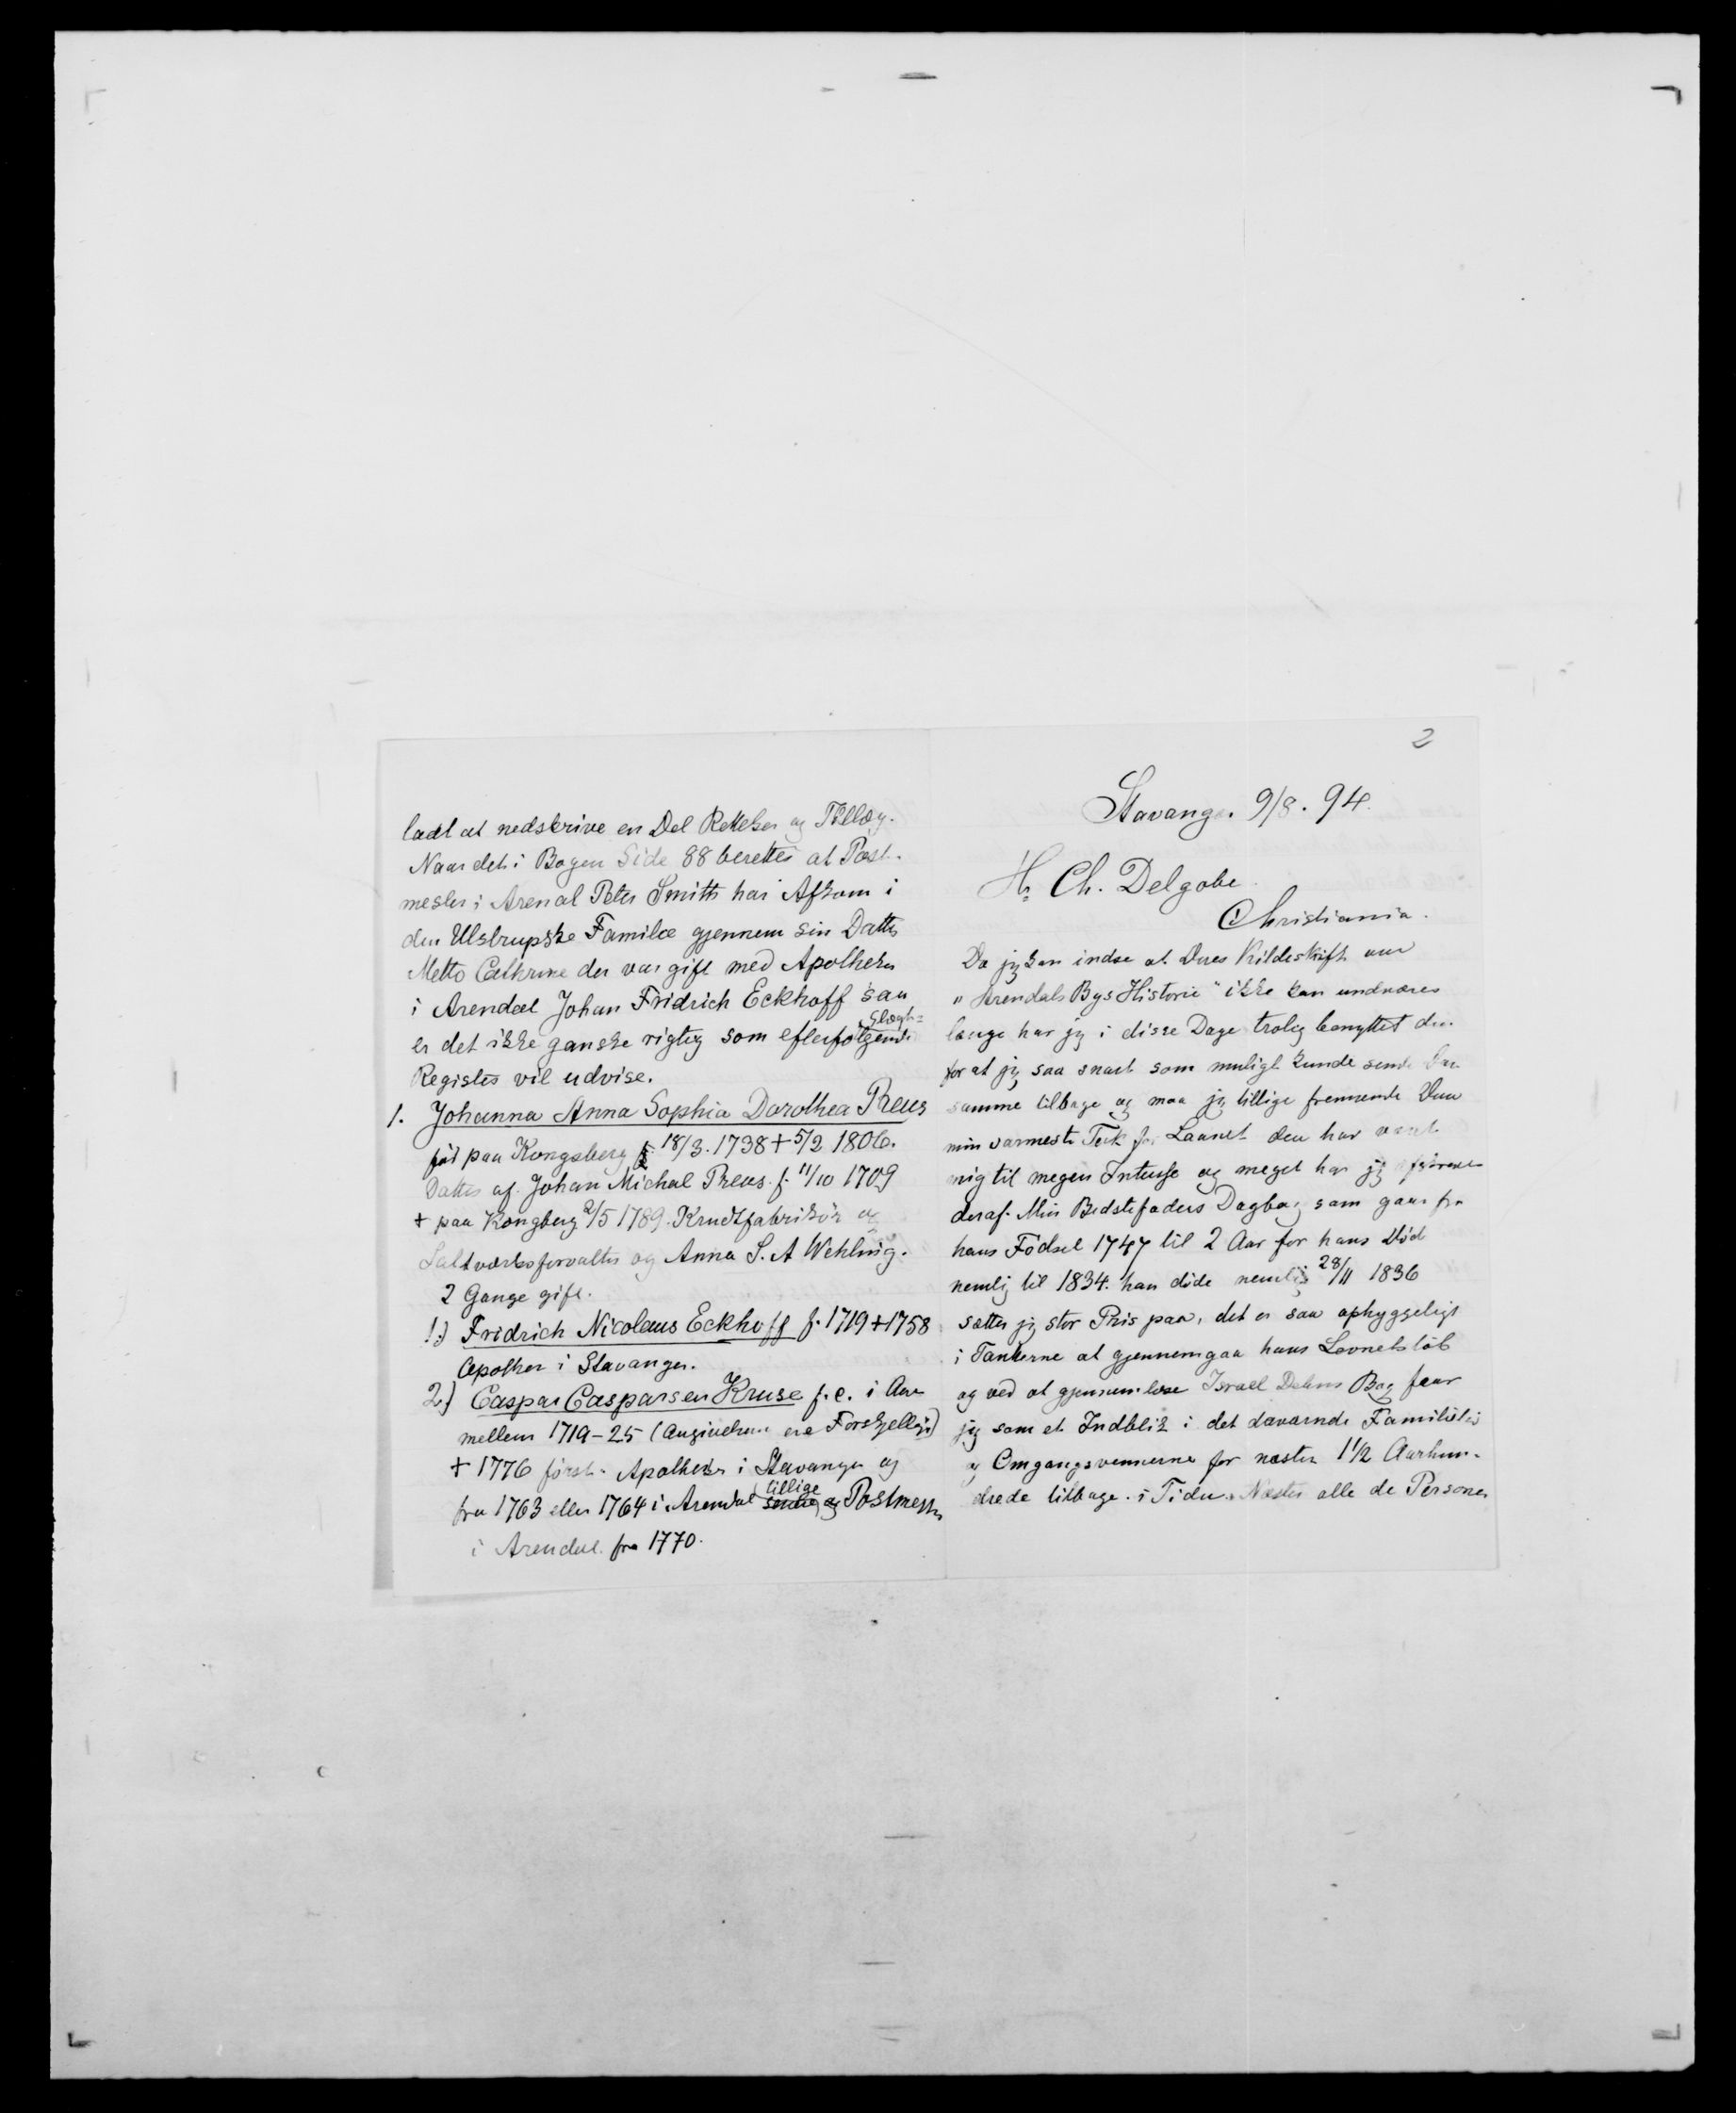 ladt at nedskrive en Del Rettelser og Tillæg.
Naar det i Bogen Side 88 berettes at Post-
mester i Arenal Peter Smith har Afkom i
den Ulstrupske Familie gjennem sin Datter
Mette Cathrine der var gift med Apotheker
i Arendal Johan Fridrich Eckhoff saa
er det ikke ganske rigtig som efterfølgende Slægts=
Register vil udvise.
1. Johanna Anna Sophia Dorothea Preus
født paa Kongsberg 18/3. 1738 + 5/2 1806.
Datter af Johan Michal Preus f. 11/10 1709
+ paa Kongberg 2/5 1789. Krudtfabrikør og
Saltværksforvalter og Anna S. A Wehling.
2 Gange gift.
1.) Fridrich Nicolaus Eckhoff f. 1719 + 1758
Apother i Stavanger.
2.) Caspar Casparsen Kruse f. c. i Aar
mellem 1719-25 (Angivelser ere Forskjellige)
+ 1776 først Apotheker i Stavanger og
fra 1763 eller 1764 i Arendal tillige Postmester
i Arendal fra 1770.
2
Stavanger 9/8. 94.
Hr. Ch. Delgobe
Christiania.
Da jeg kan indse at Deres Kildeskrift
"Arendals Bys Historie" ikke kan undværes
længe har jeg i disse Dage trolig benyttet den
for at jeg saa snart som muligt kunde sende Dem
samme tilbage og maa jeg tillige fremsende Dem
min varmeste Tak for Laanet den har været
mig til megen Intresse og meget har jeg
deraf. Min Bedstefaders Dagbog som gaar fra
hans Fødsel 1747 til 2 Aar før hans Død
nemlig til 1834. han døde nemlig 28/11 1836
sætter jeg stor Pris paa, det er saa ophyggeligt
i Tankerne at gjennemgaa hans Levnetsløb
og ved at gjennemlæse Israel Dehns Bog faar
jeg som et Indblik i det daværnde Familieliv
og Omgangsvennerne for næsten 1 1/2 Aarhun-
drede tilbage i Tiden. Næsten alle de Personer